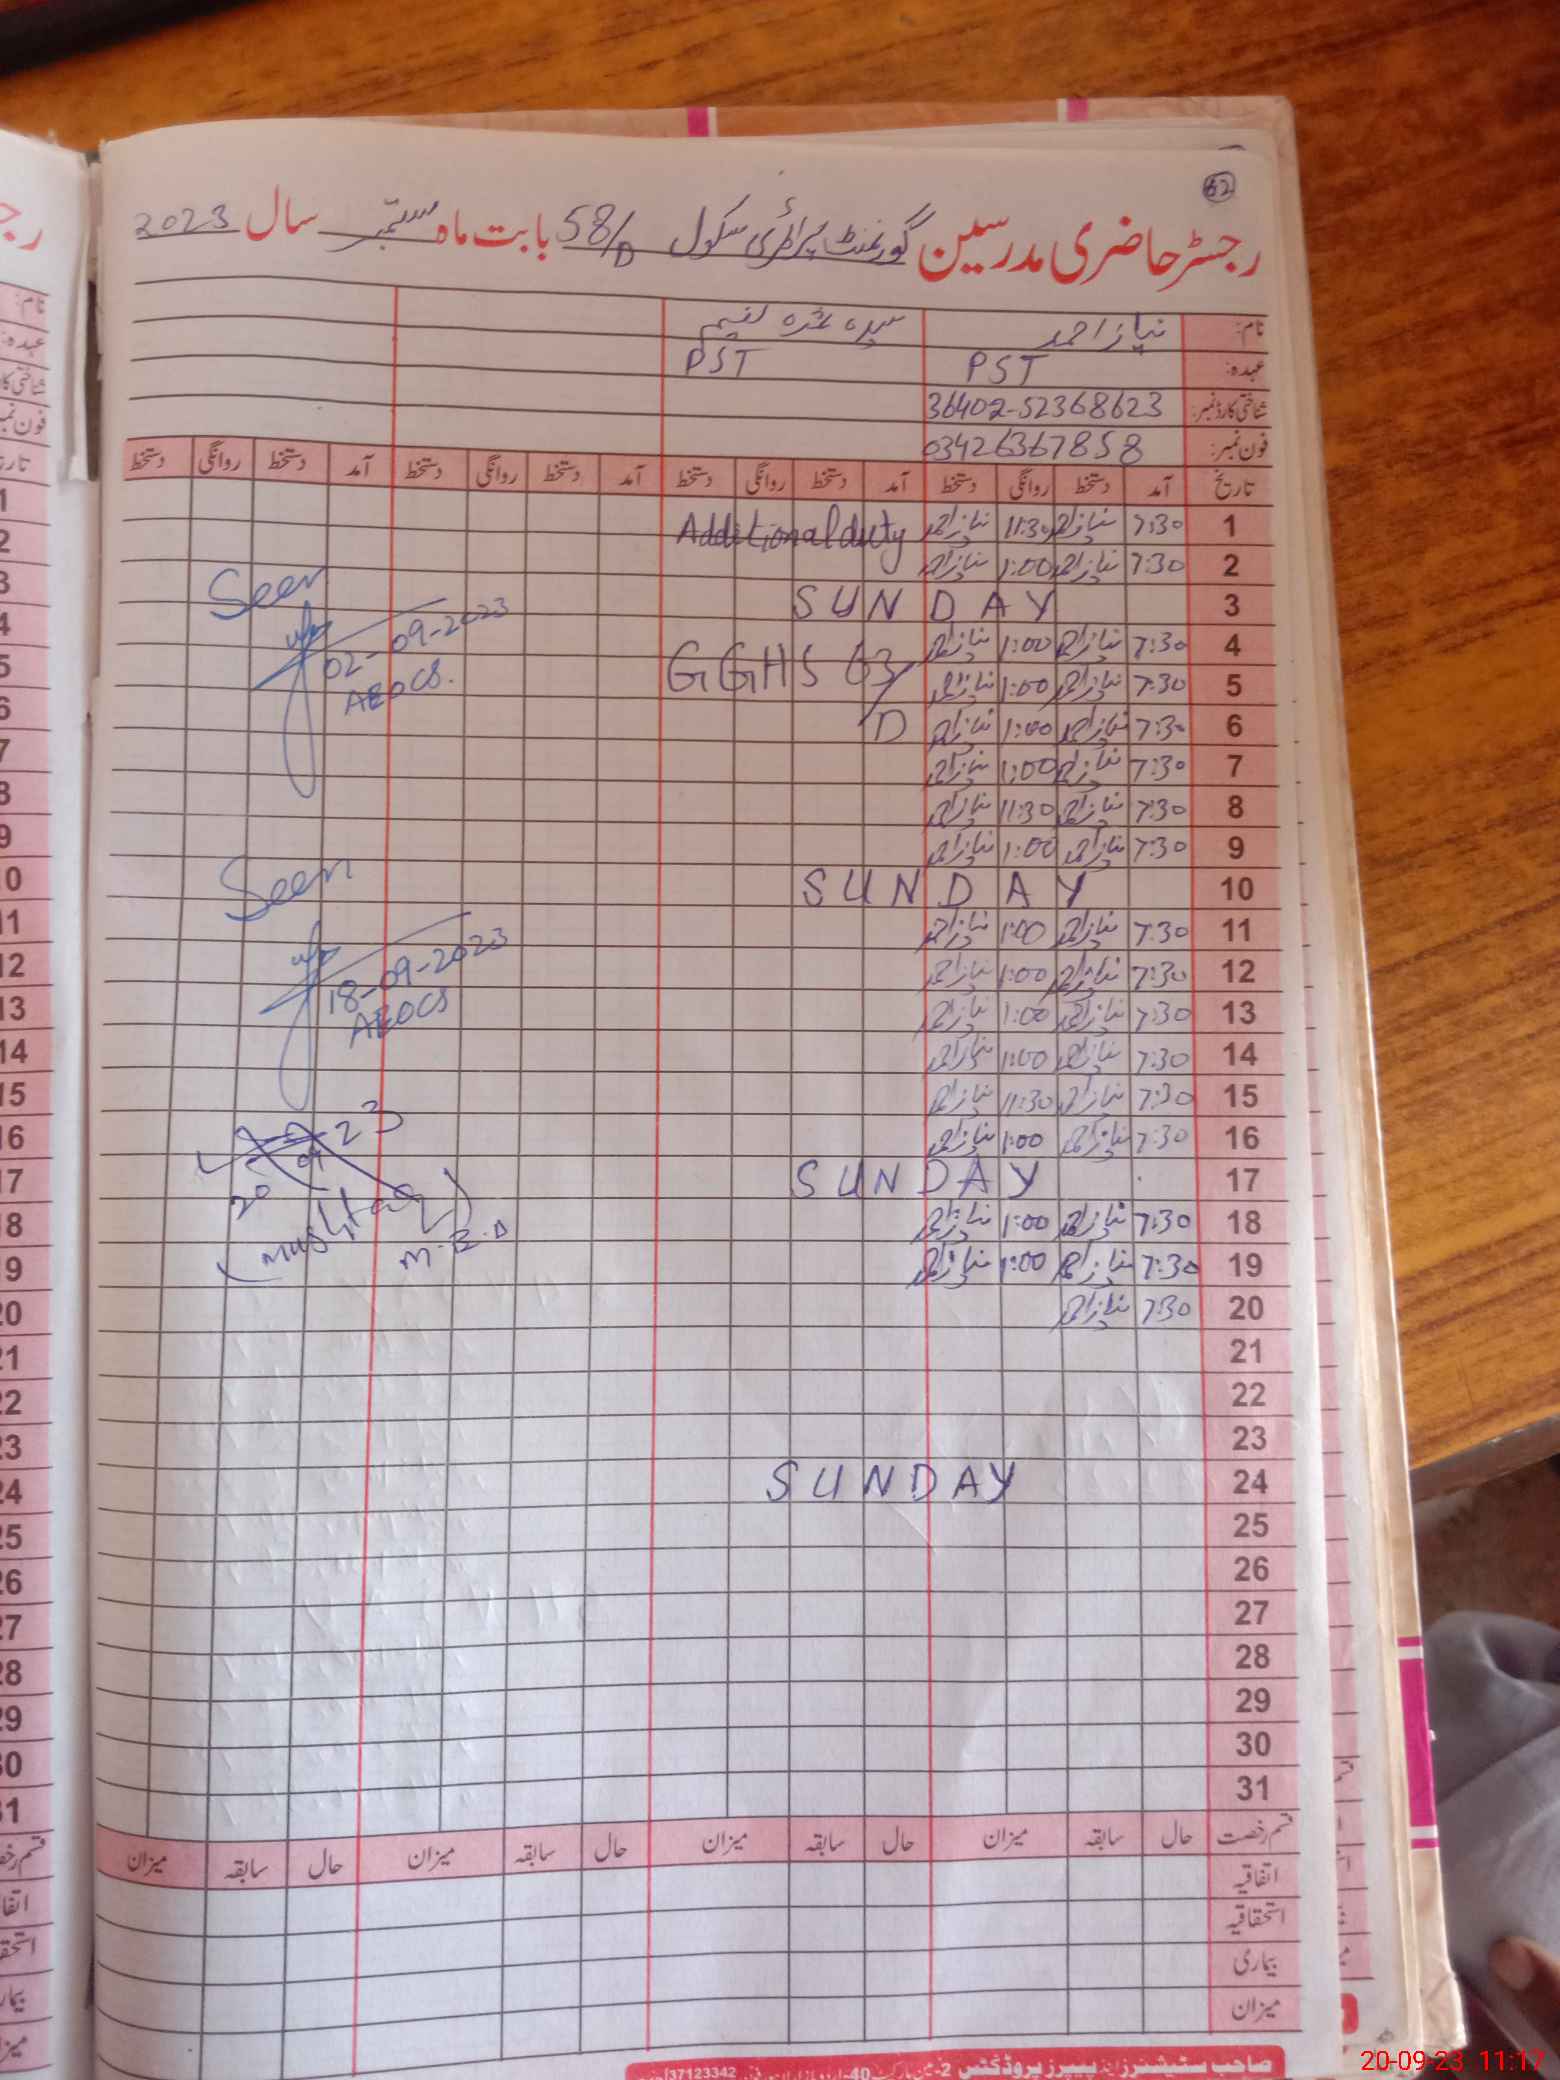 62
رجسٹر حاضری مدرسین گورنمنٹ پرائمری سکول 58/D بابت ماہ ستمبر سال 2023
نام: نیاز احمد سیدہ
عہدہ: PST PST
شناختی کارڈ نمبر: 36402-52368623
فون نمبر: 03426367858
تاریخ آمد دستخط روانگی دستخط آمد دستخط روانگی دستخط آمد دستخط روانگی دستخط آمد دستخط روانگی دستخط
1 7:30 نیاز احمد 11:30 نیاز احمد Additional duty
2 7:30 نیاز احمد 1:00 نیاز احمد
3 SUNDAY
4 7:30 نیاز احمد 1:00 نیاز احمد GGHS 63/D
5 7:30 نیاز احمد 1:00 نیاز احمد
6 7:30 نیاز احمد 1:00 نیاز احمد
7 7:30 نیاز احمد 1:00 نیاز احمد
8 7:30 نیاز احمد 11:30 نیاز احمد
9 7:30 نیاز احمد 1:00 نیاز احمد
10 SUNDAY
11 7:30 نیاز احمد 1:00 نیاز احمد
12 7:30 نیاز احمد 1:00 نیاز احمد
13 7:30 نیاز احمد 1:00 نیاز احمد
14 7:30 نیاز احمد 1:00 نیاز احمد
15 7:30 نیاز احمد 11:30 نیاز احمد
16 7:30 نیاز احمد 1:00 نیاز احمد
17 SUNDAY
18 7:30 نیاز احمد 1:00 نیاز احمد
19 7:30 نیاز احمد 1:00 نیاز احمد
20 7:30 نیاز احمد
21
22
23
24 SUNDAY
25
26
27
28
29
30
31
Seen
02-09-2023
AEOCS.
Seen
18-09-2023
AEOCS
20 09 23
(Mushtaq)
M.E.A
قسم رخصت حال سابقہ میزان حال سابقہ میزان حال سابقہ میزان حال سابقہ میزان
اتفاقیہ
استحقاقیہ
بیماری
میزان
صاحب سٹیشنرز اینڈ پیپرز پروڈکٹس 2- 40- 37123342
20-09-23 11:17